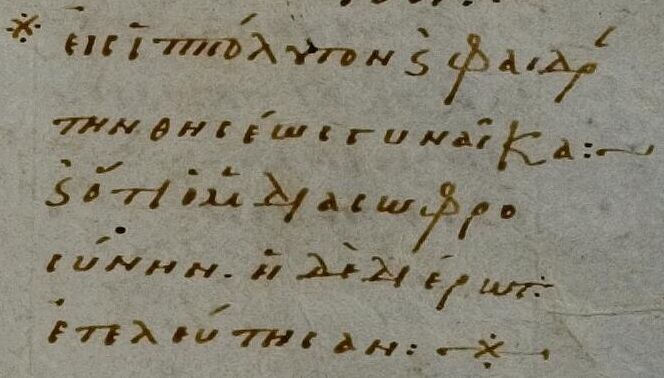 ※ εἰς ἱππόλυτον ϗ φαιδρ
την θησέως γυναῖκα:~
ϗ ὅτι ὁ μ̅ δια σωφρο
σύνην· ἡ δὲ δι έρωτ:
ἐτελεύτησαν: ~※~